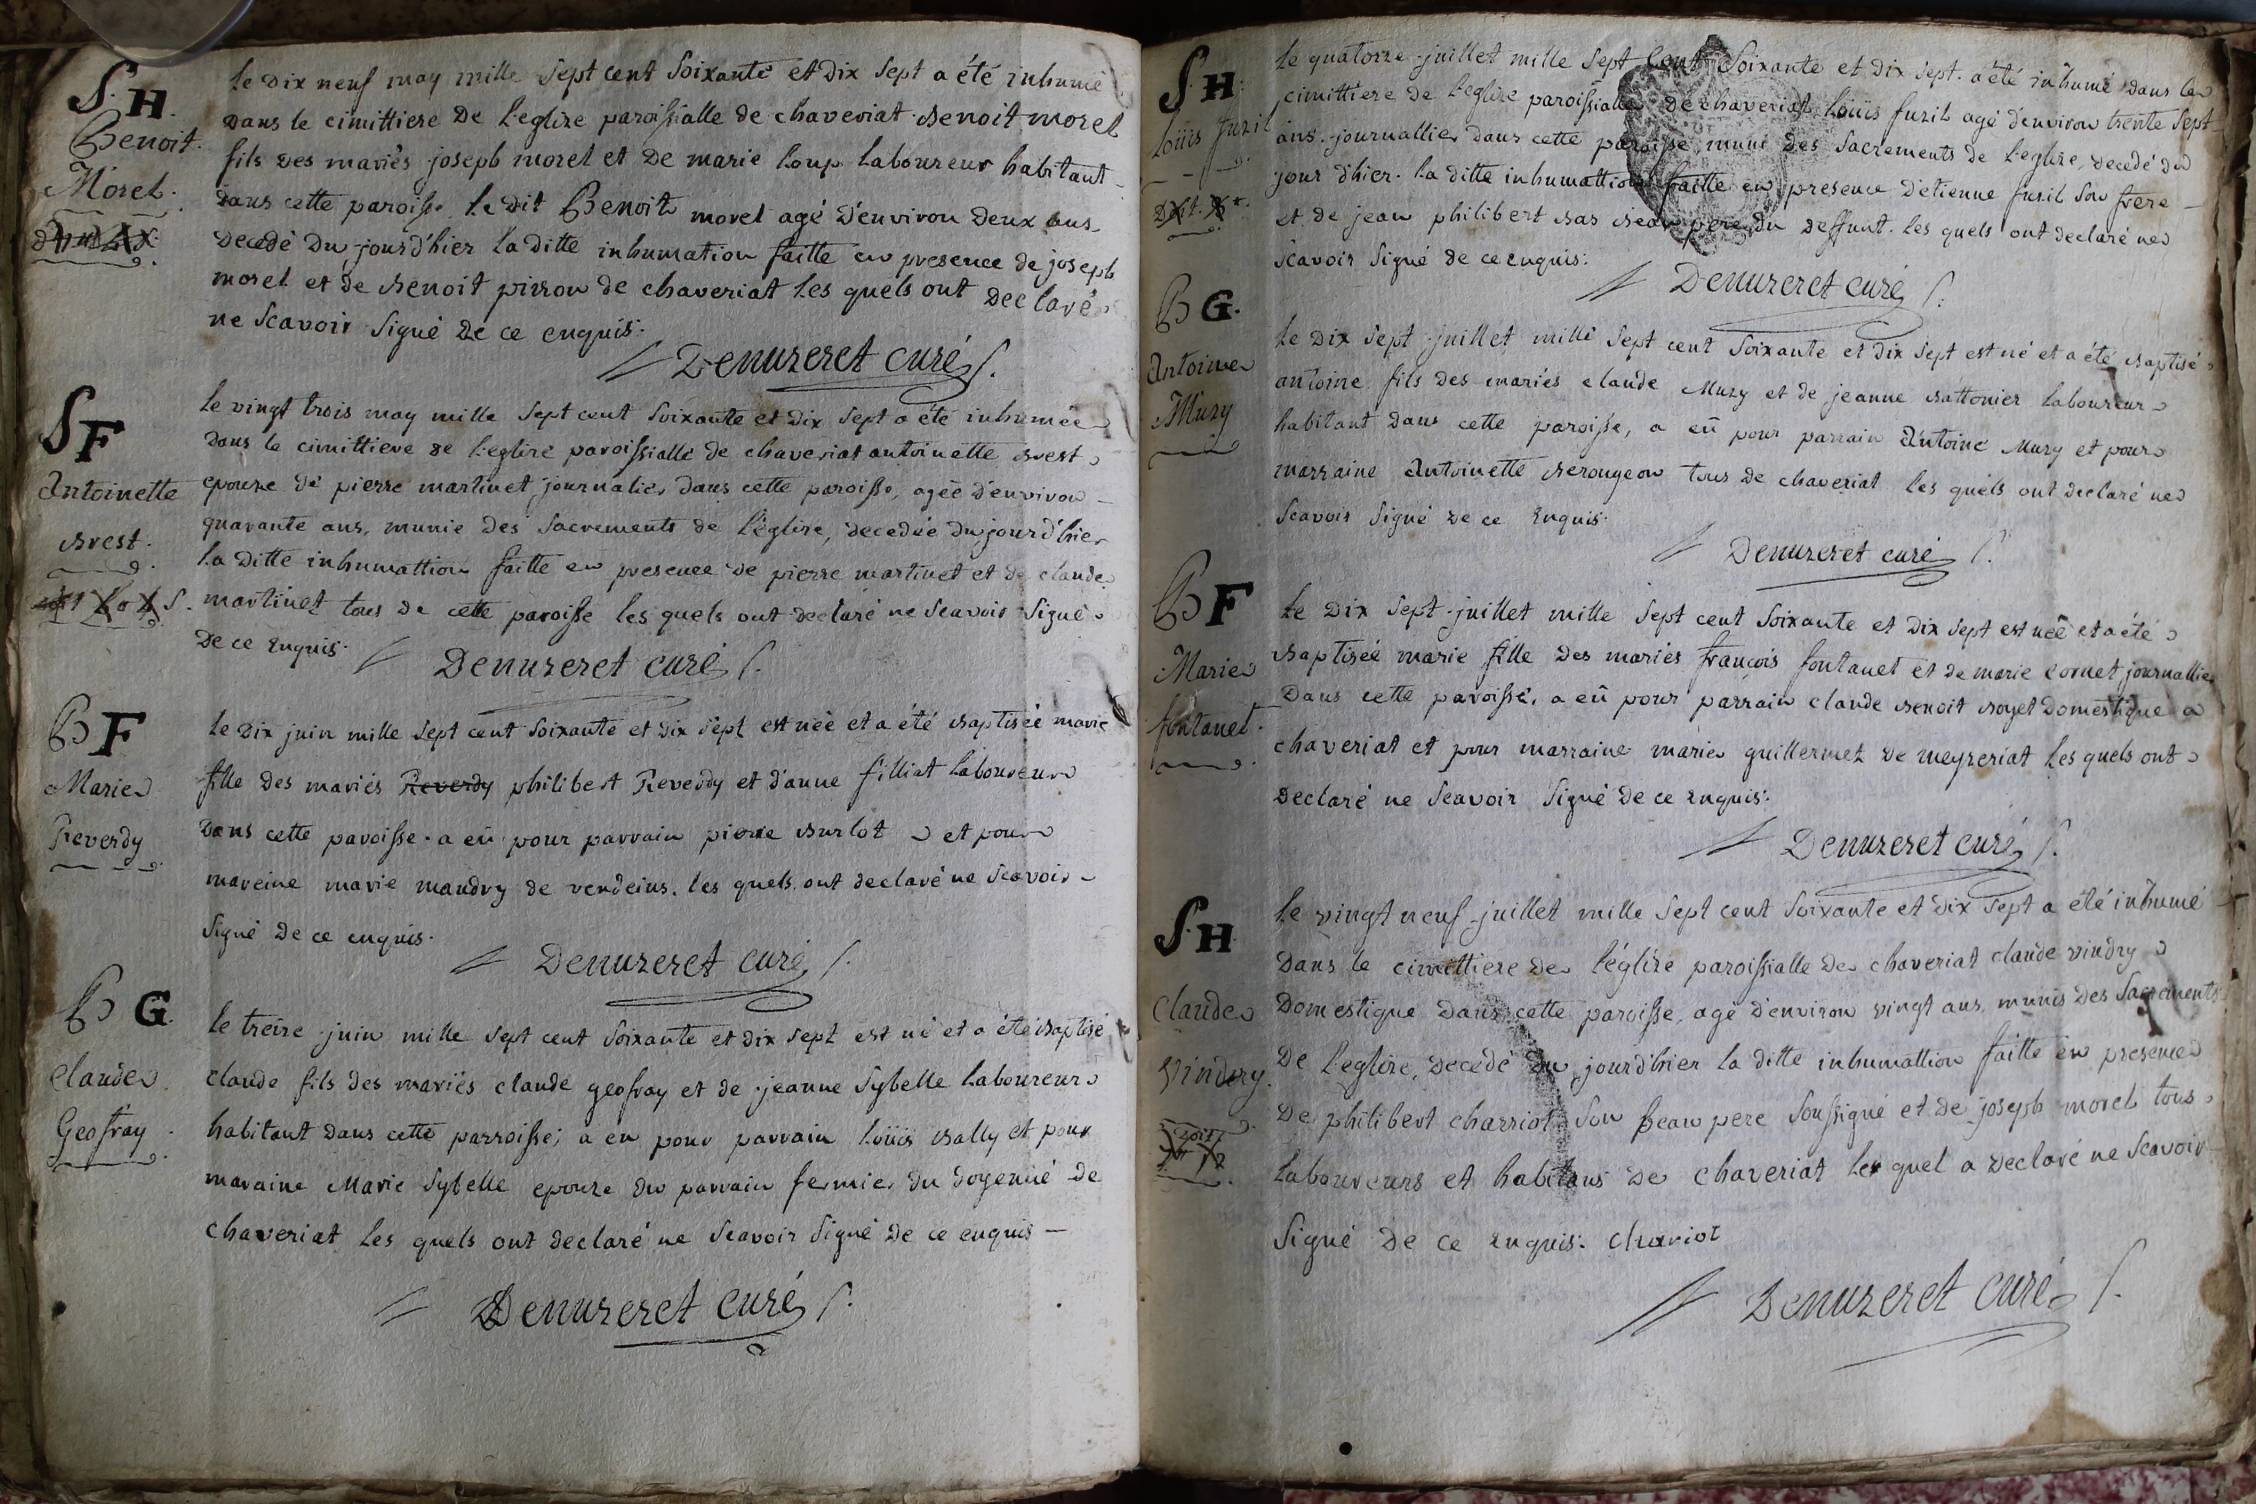 S. H.
Benoit
Morel.
le dix neuf may mille sept cent soixante et dix sept a été inhumé
dans le cimittiere de l'eglize paroissialle de chaveriat benoit morel
fils des mariés joseph morel et de marie loup laboureur habitant
dans cette paroisse. le dit Benoit morel agé d'environ deux ans
decedé du jourd'hier la ditte inhumation faitte en presence de joseph
morel et de benoit pirron de chaveriat les quels ont declaré
ne scavoir signé de ce enquis.
Denuzeret curé
S F
Antoinette
brest.
le vingt trois may mille sept cent soixante et dix sept a été inhumée
dans le cimittiere de l'eglize paroissialle de chaveriat antoinette brest
epouze de pierre martinet journalier dans cette paroisse, agée d'environ
quarante ans, munie des sacrements de l'églize, decedée du jourd'hier
la ditte inhumattion faitte en presence de pierre martinet et de claude
martinet tous de cette paroisse les quels ont declaré ne scavoir signé
de ce enquis.
Denuzeret curé
B F
Marie
Reverdy
le dix juin mille sept cent soixante et dix sept est née et a été baptisée marie
fille des mariés Reverdy philibert Reverdy et d'anne filliat laboureur
dans cette paroisse. a eü pour parrain pierre burlot et pour
mareine marie maudry de vendeins. les quels ont declaré ne scavoir
signé de ce enquis.
Denuzeret curé
B G.
Claude
Geofray
le treize juin mille sept cent soixante et dix sept est né et a été baptisé
claude fils des mariés claude geofray et de jeanne sybelle laboureur
habitant dans cette parroisse; a eu pour parrain loüis bally et pour
maraine Marie sybelle epouze du parrain fermier du doyenné de
chaveriat les quels ont declaré ne scavoir signé de ce enquis
Denuzeret curé
S. H.
loüis fuzil
le quatorze juillet mille sept cent soixante et dix sept. a été inhumé dans le
cimittiere de l'eglize paroissialle de chaveriat loüis fuzil agé d'environ trente sept
ans. journallier dans cette paroisse, muni des sacrements de l'eglize, decedé du
jour d'hier. la ditte inhumattion faitte en presence d'etienne fuzil son frere
et de jean philibert bas beau pere du deffunt. les quels ont declaré ne
scavoir signé de ce enquis.
Denuzeret curé
B G.
Antoine
Muzy
le dix sept juillet mille sept cent soixante et dix sept est né et a été baptisé
antoine fils des mariés claude Muzy et de jeanne battonier laboureur
habitant dans cette paroisse, a eü pour parrain Antoine Muzy et pour
marraine Antoinette berougeon tous de chaveriat les quels ont declaré ne
scavoir signé de ce enquis.
Denuzeret curé
B F
Marie
fontanet.
le dix sept juillet mille sept cent soixante et dix sept est née et a été
baptisée marie fille des mariés françois fontanet et de marie cornet journallier
dans cette paroisse, a eü pour parrain claude benoit boyet domestique a
chaveriat et pour marraine marie guillermet de meyzeriat les quels ont
declaré ne scavoir signé de ce enquis.
Denuzeret curé
S. H
Claude
Vindry.
le vingt neuf juillet mille sept cent soixante et dix sept a été inhumé
dans le cimittiere de l'églize paroissialle de chaveriat claude vindry
domestique dans cette paroisse, agé d'environ vingt ans, munis des sacrements
de l'eglize, decedé du jourd'hier la ditte inhumattion faitte en presence
de philibert charriot son beau pere soussigné et de joseph morel tous
laboureurs et habitans de chaveriat le quel a declaré ne scavoir
signé de ce enquis. chariot
Denuzeret curé